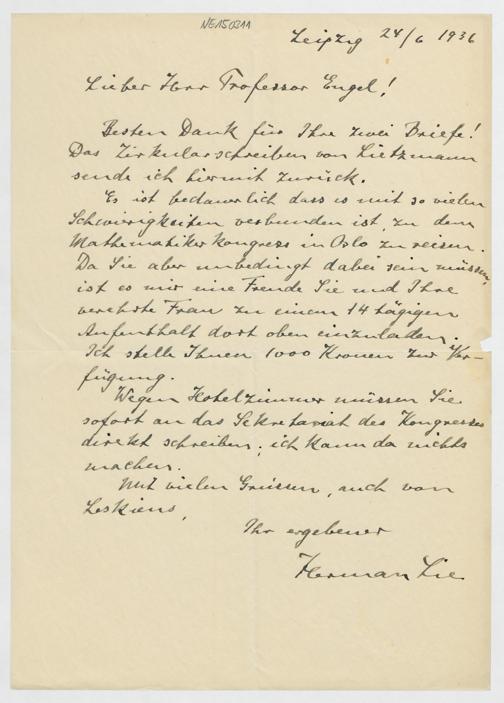 NE150311
Leipzig 24/6 1936
Lieber Herr Professor Engel!
Besten Dank für Ihre zwei Briefe!
Das Zirkularschreiben von Lietzmann
sende ich hiermit zurück.
Es ist bedauerlich dass es mit so vielen
Schwierigkeiten verbunden ist, zu dem
Mathematikerkongress in Oslo zu reisen.
Da Sie aber unbedingt dabei sein müssen,
ist es mir eine Freude Sie und Ihre
verehrte Frau zu einem 14 tägigen
Aufenthalt dort oben einzuladen.
Ich stelle Ihnen 1000 Kronen zur Ver-
fügung.
Wegen Hotelzimmer müssen Sie
sofort an das Sekretariat des Kongresses
direkt schreiben; ich kann da nichts
machen.
Mit vielen Grüssen, auch von
Leskiens,
Ihr ergebener
Herman Lie